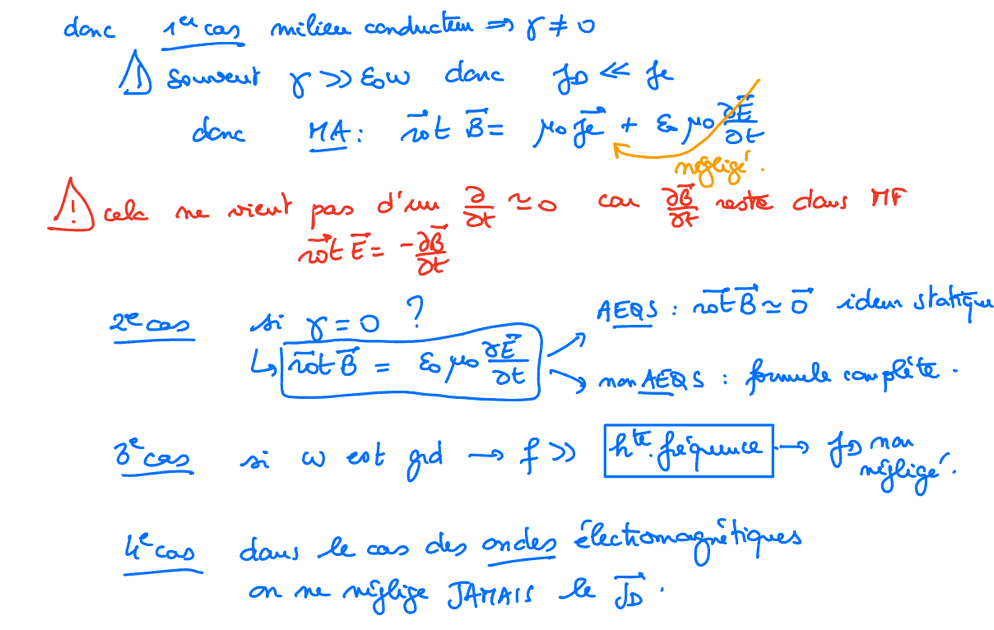 donc 1er cas milieu conducteur ⇒ γ ≠ 0
⚠ souvent γ >> ε₀ω donc j_D << j_e
donc MA : rot B = μ₀ j_e + ε₀ μ₀ ∂E/∂t
négligé.
⚠ cela ne vient pas d'un ∂/∂t ≃ 0 car ∂B/∂t reste dans MF
rot E = - ∂B/∂t
2e cas si γ = 0 ?
AEQS : rot B ≃ 0 idem statique
↳ rot B = ε₀ μ₀ ∂E/∂t
non AEQS : formule complète.
3e cas si ω est grd → f >> hte. fréquence → j_D non négligé.
4e cas dans le cas des ondes électromagnétiques
on ne néglige JAMAIS le J_D.